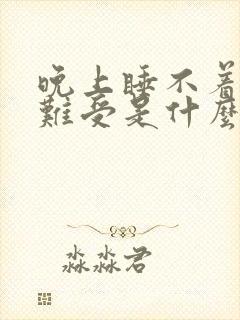 晚上睡不着
难受是什麽
淼淼君